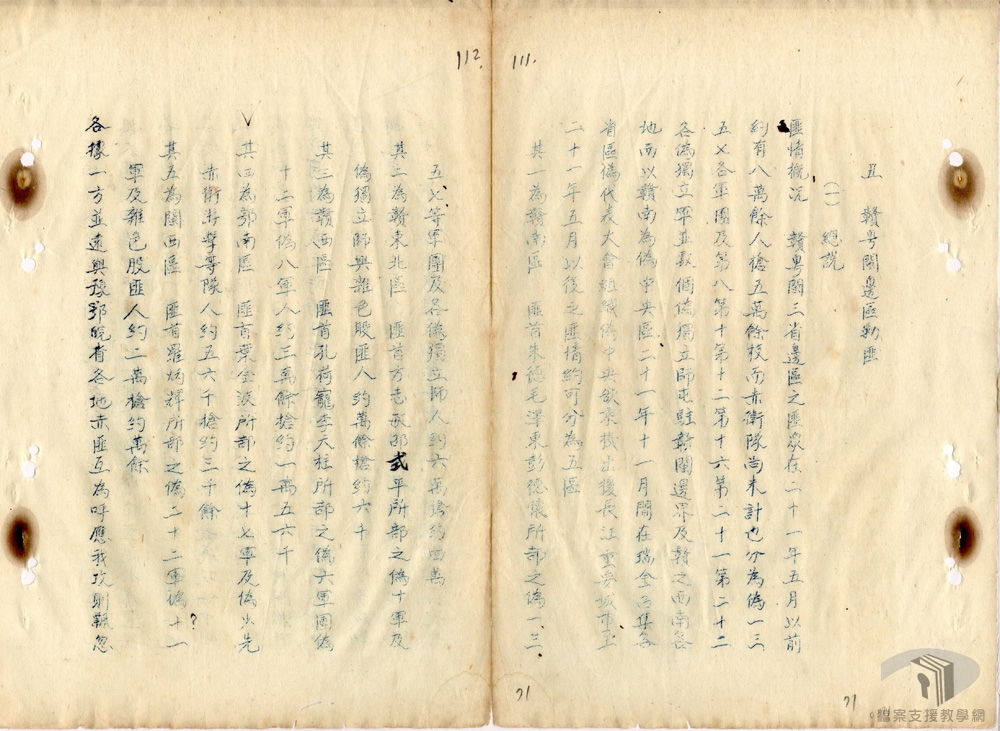 111.
五 贛粵閩邊區勦匪
(一) 總說
匪情概況 贛粵閩三省邊區之匪眾在二十一年五月以前
約有八萬餘人槍五萬餘枝而赤衛隊尚未計也分為偽一三
五七各軍團及第八第十第十二第十六第二十一第二十二
各偽獨立軍並數個偽獨立師屯駐贛閩邊界及贛之西南各
地而以贛南為偽中央區二十一年十一月間在瑞金召集各
省區偽代表大會組織偽中央欲乘機出擾長江重要城市至
二十一年五月以後之匪情約可分為五區
其一為贛南區 匪首朱德毛澤東彭德懷所部之偽一三
71
112.
五七等軍團及各偽獨立師人約六萬槍約四萬
其二為贛東北區 匪首方志敏邵式平所部之偽十軍及
偽獨立師與雜色股匪人約萬餘槍約六千
其三為贛西區 匪首孔荷寵李天柱所部之偽六軍團偽
十二軍偽八軍人約三萬餘槍約一萬五六千
其四為鄂南區 匪首葉金波所部之偽十七軍及偽少先
赤衛游擊等隊人約五六千槍約三千餘
其五為閩西區 匪首羅炳輝所部之偽二十二軍偽十一
?
軍及雜色股匪人約二萬槍約萬餘
各據一方並遠與豫鄂皖省各地赤匪互為呼應我攻則飄忽
71
檔案支援教學網